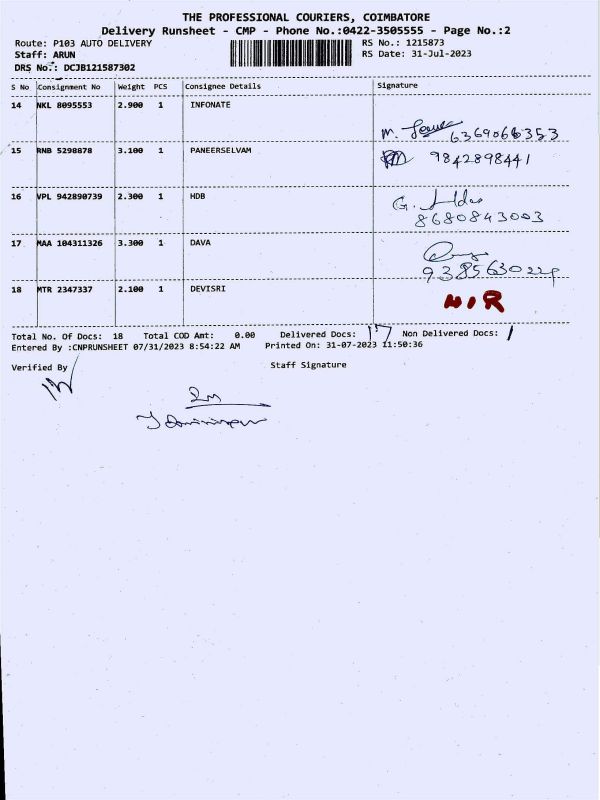 THE PROFESSIONAL COURIERS, COIMBATORE
Delivery Runsheet - CMP - Phone No.:0422-3505555 - Page No.:2
Route: P103 AUTO DELIVERY RS No.: 1215873
Staff: ARUN RS Date: 31-Jul-2023
DRS No.: DCJB121587302
S No Consignment No Weight PCS Consignee Details Signature
14 NKL 8095553 2.900 1 INFONATE
M. 6369066353
15 RNB 5298878 3.100 1 PANEERSELVAM
9842898441
16 VPL 942890739 2.300 1 HDB
G.
8680843003
17 MAA 104311326 3.300 1 DAVA
9385630224
18 MTR 2347337 2.100 1 DEVISRI N/R
Total No. Of Docs: 18 Total COD Amt: 0.00 Delivered Docs: 17 Non Delivered Docs: 1
Entered By :CNPRUNSHEET 07/31/2023 8:54:22 AM Printed On: 31-07-2023 11:50:36
Verified By Staff Signature